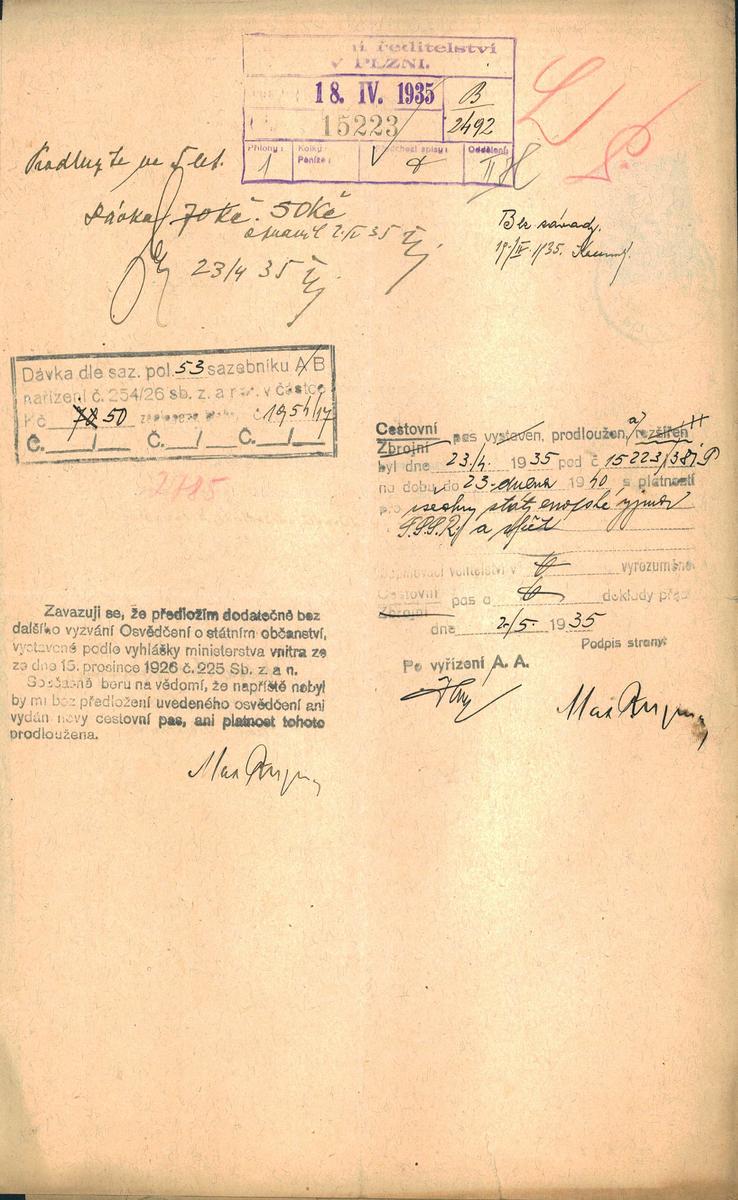 ní ředitelství
V PLZNI.
18. IV. 1935
B
2492
15223
Přílohy:
1
Kolky:
Peníze:
Předchozí spisy:
Oddělení:
II
Prodlužte na 5 let.
Dávka 70 Kč. 50 Kč
opravil 2/V 35
23/4 35
Bez závady.
19/IV. 1935.
Dávka dle saz. pol. 53 sazebníku A/B
nařízení č. 254/26 sb. z. a n. v částce
Kč 70 50
Č. / Č. / Č. /
2785
Cestovní pas vystaven, prodloužen, a) rozšířen
Zbrojní
byl dne 23/4. 1935 pod č 15223/
na dobu do 23. dubna 1940 s platností
pro všechny státy evropské vyjma
S.S.S.R. a zpět
Doplňovací velitelství v vyrozuměno
Cestovní pas a doklady
Zbrojní
dne 2/5. 1935
Podpis strany:
Po vyřízení A. A.
Zavazuji se, že předložím dodatečně bez
dalšího vyzvání Osvědčení o státním občanství,
vystavené podle vyhlášky ministerstva vnitra ze
ze dne 15. prosince 1926 č. 225 Sb. z. a n.
Současně beru na vědomí, že napříště nebyl
by mi bez předložení uvedeného osvědčení ani
vydán nový cestovní pas, ani platnost tohoto
prodloužena.
Max
Max